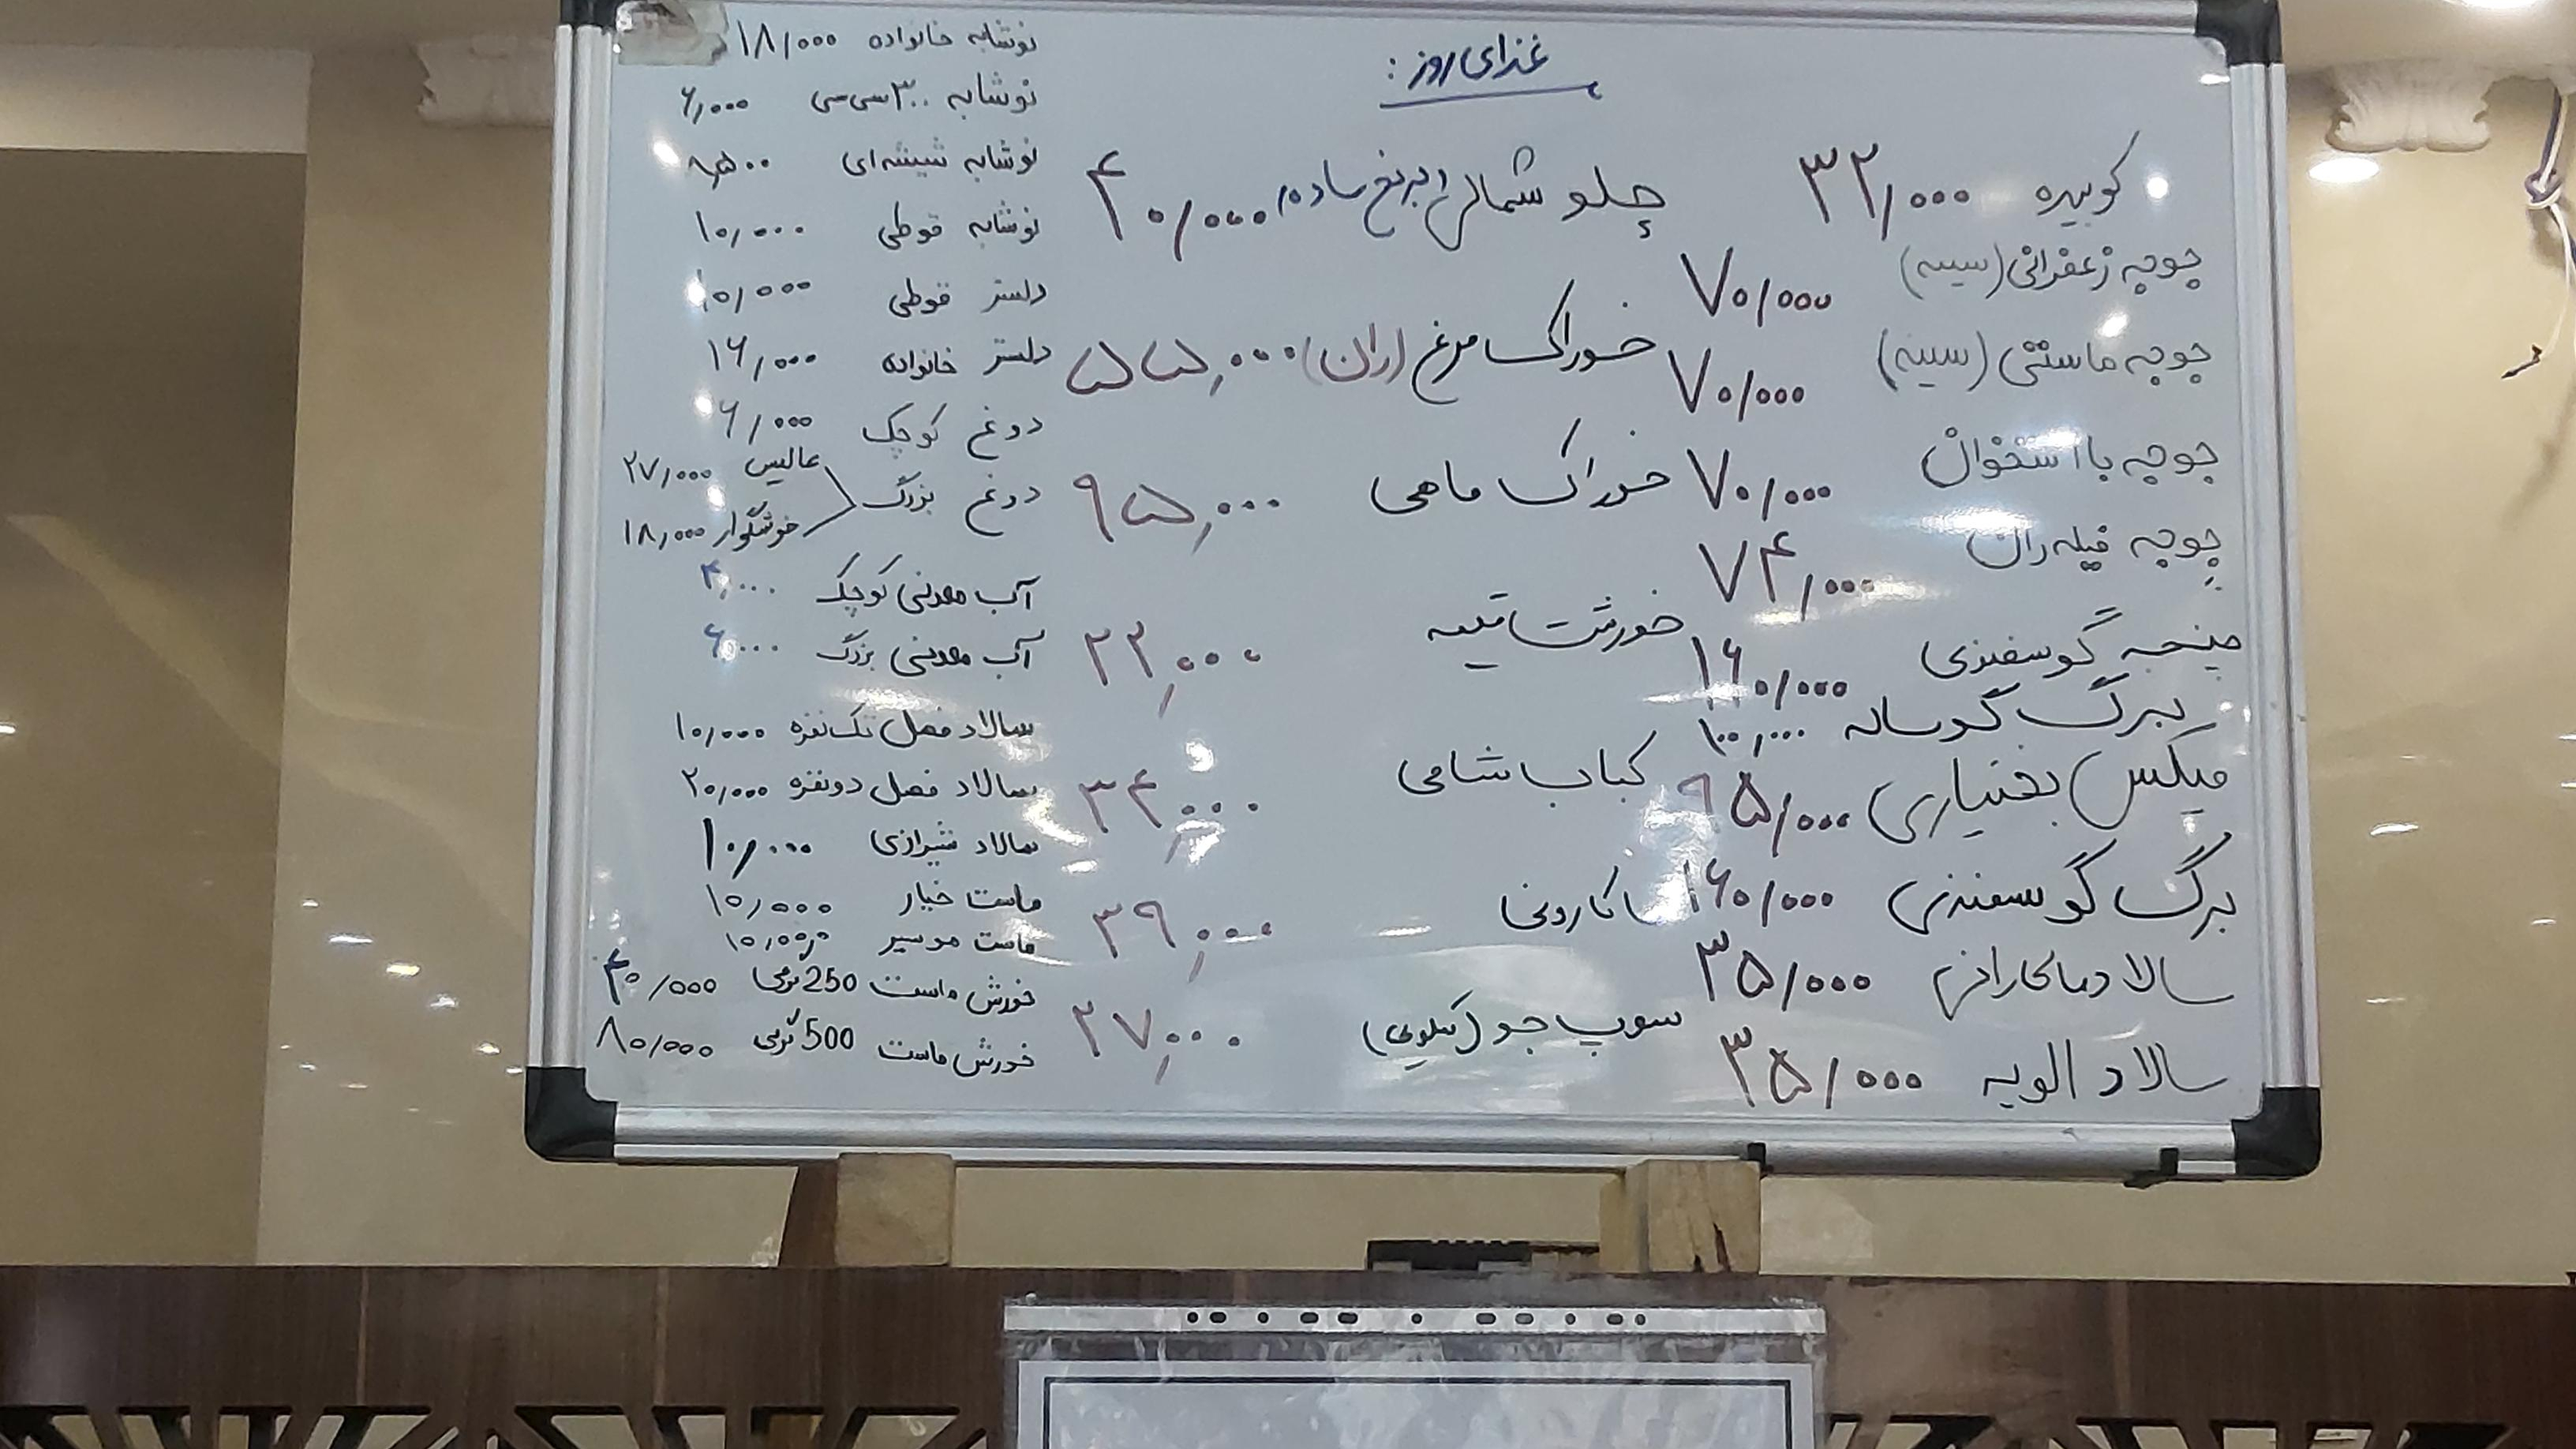 غذای روز :
کوبیده ۳۲,۰۰۰
جوجه زعفرانی (سینه) ۷۰,۰۰۰
جوجه ماستی (سینه) ۷۰,۰۰۰
جوجه با استخوان ۷۰,۰۰۰
جوجه فیله ران ۷۴,۰۰۰
چنجه گوسفندی ۱۶۰,۰۰۰
برگ گوساله ۱۰۰,۰۰۰
میکس بختیاری ۹۵,۰۰۰
برگ گوسفندی ۱۶۰,۰۰۰
سالاد ماکارانی ۳۵,۰۰۰
سالاد الویه ۳۵,۰۰۰
چلو شمالی (برنج ساده) ۴۰,۰۰۰
خوراک مرغ (ران) ۵۵,۰۰۰
خوراک ماهی ۹۵,۰۰۰
خورشت قیمه ۲۲,۰۰۰
کباب شامی ۳۴,۰۰۰
ماکارونی ۳۹,۰۰۰
سوپ جو (کیلویی) ۲۷,۰۰۰
نوشابه خانواده ۱۸,۰۰۰
نوشابه ۳۰۰ سی سی ۶,۰۰۰
نوشابه شیشه ای ۸,۵۰۰
نوشابه قوطی ۱۰,۰۰۰
دلستر قوطی ۱۰,۰۰۰
دلستر خانواده ۱۶,۰۰۰
دوغ کوچک ۶,۰۰۰
دوغ بزرگ
عالیس ۲۷,۰۰۰
خوشگوار ۱۸,۰۰۰
آب معدنی کوچک ۴,۰۰۰
آب معدنی بزرگ ۶,۰۰۰
سالاد فصل تک نفره ۱۰,۰۰۰
سالاد فصل دونفره ۲۰,۰۰۰
سالاد شیرازی ۱۰,۰۰۰
ماست خیار ۱۰,۰۰۰
ماست موسیر ۱۰,۰۰۰
خورش ماست 250 گرمی ۴۰,۰۰۰
خورش ماست 500 گرمی ۸۰,۰۰۰